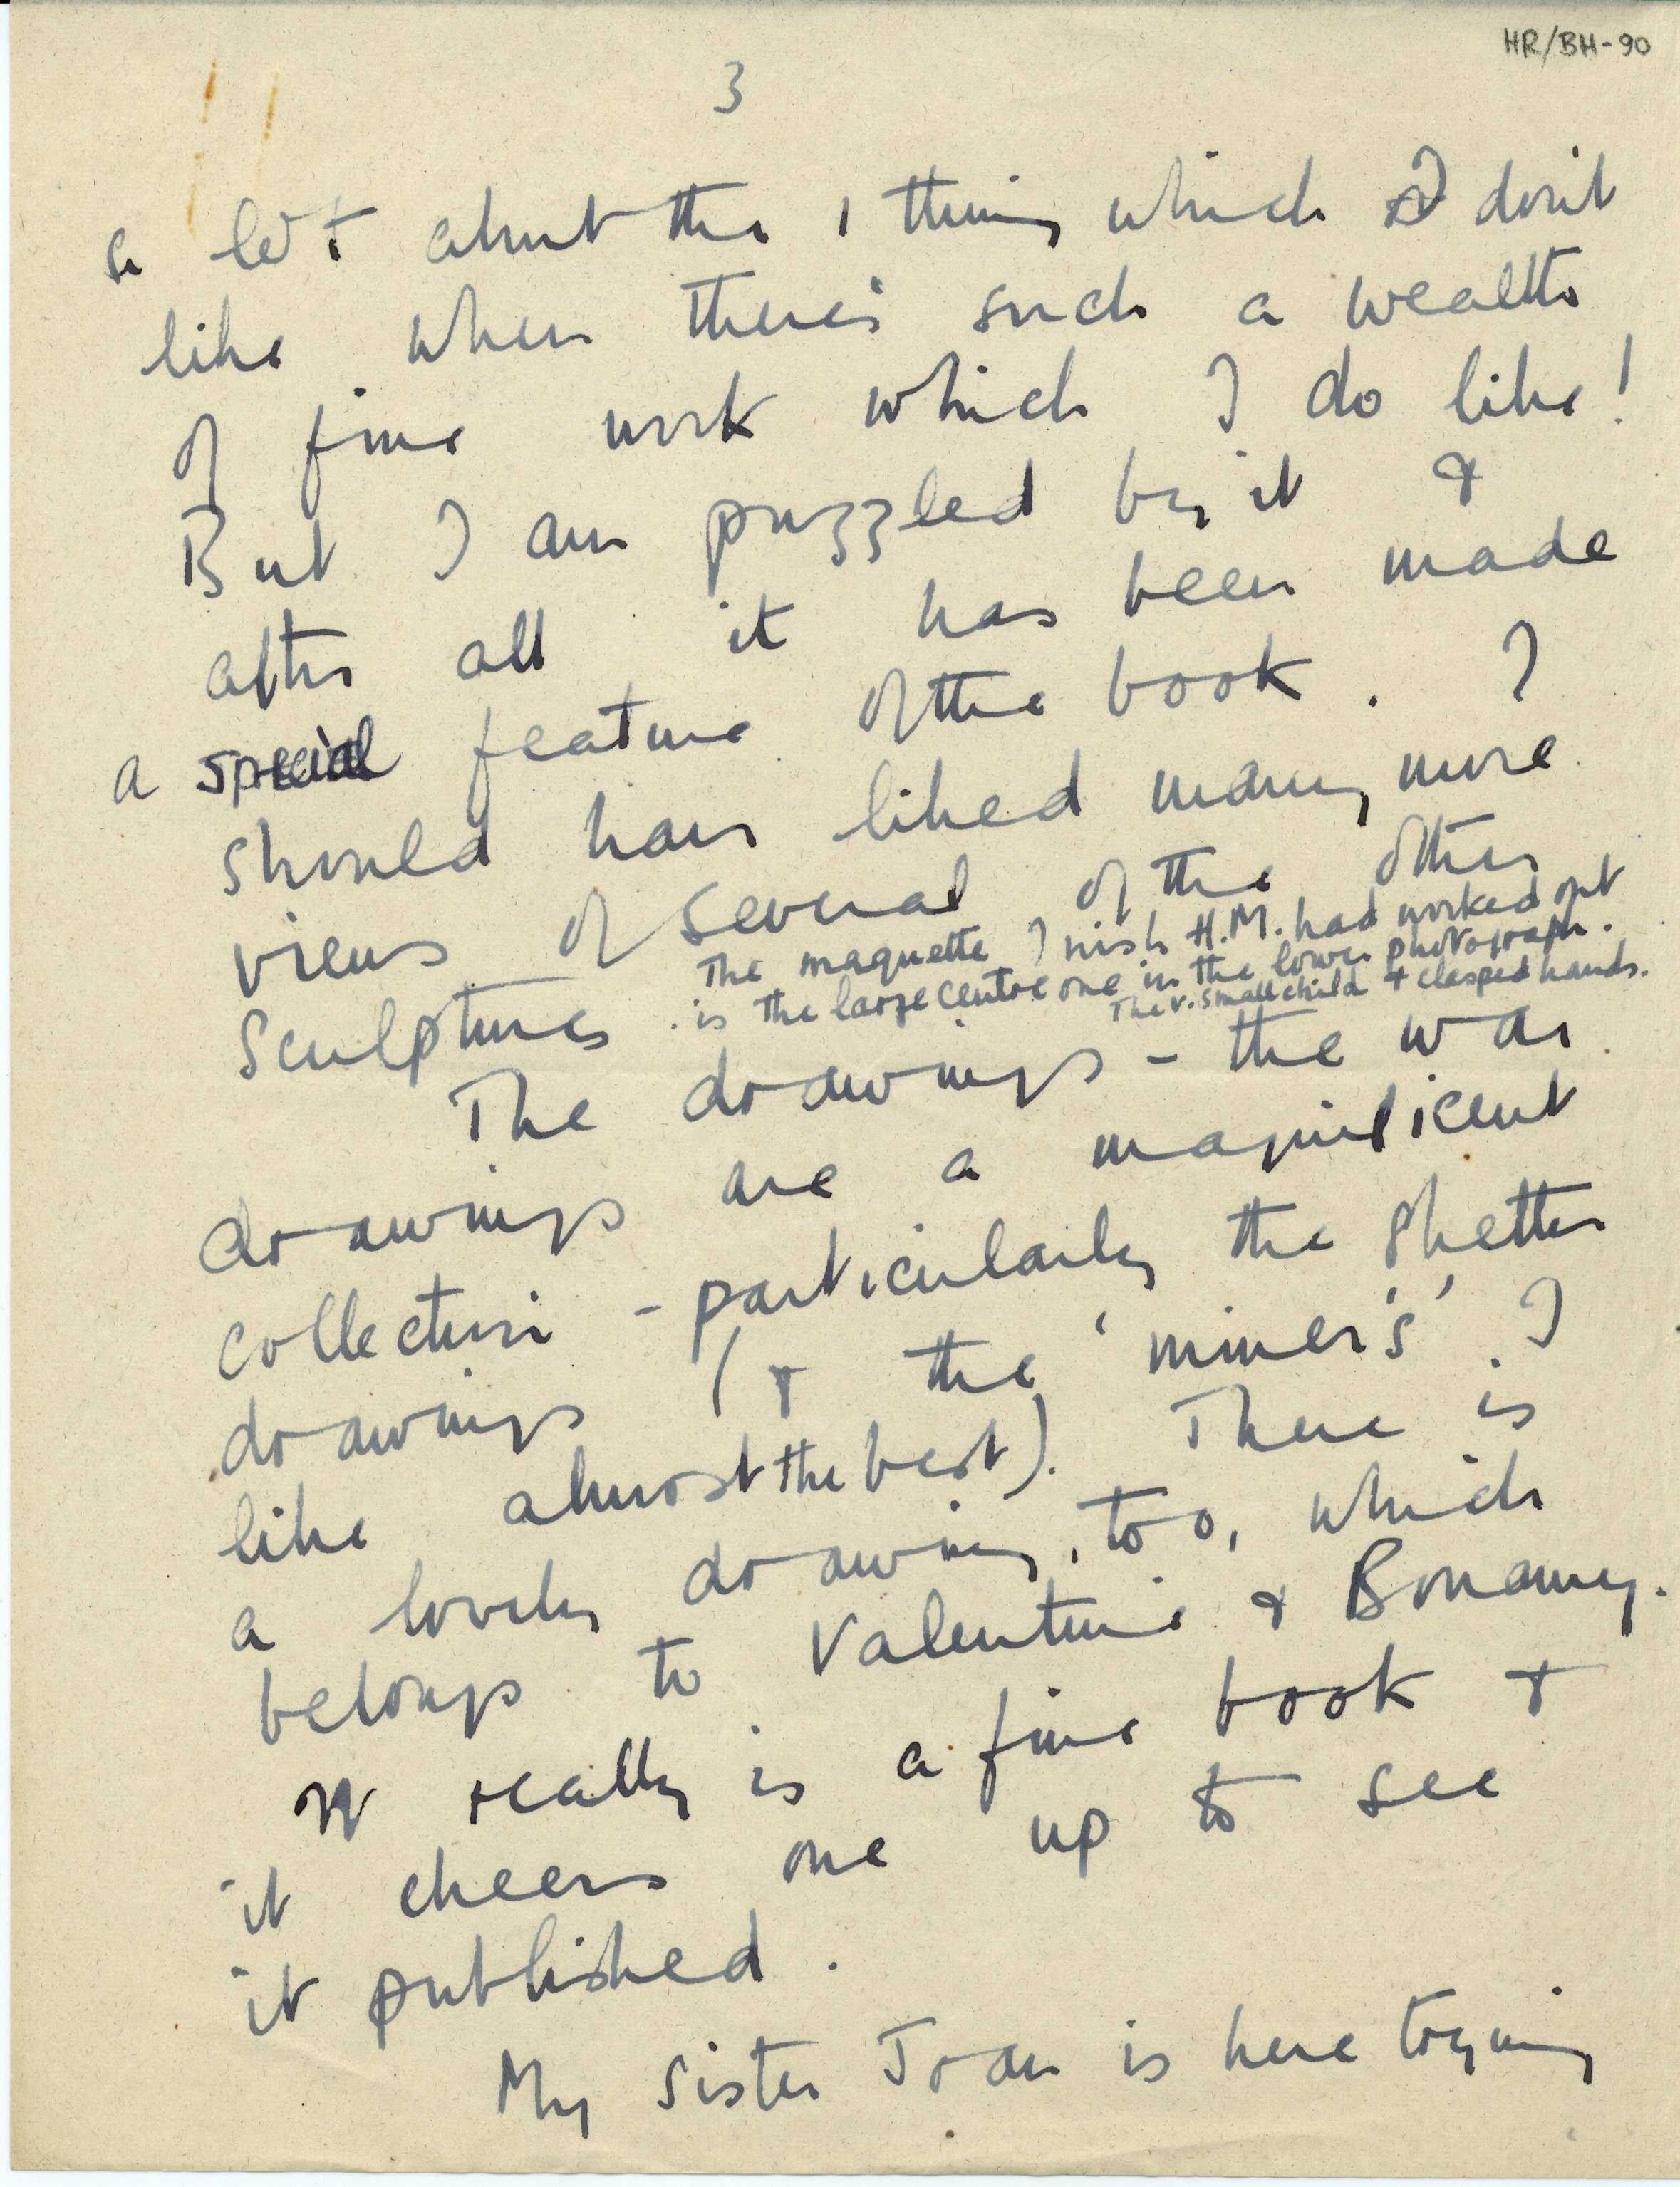 HR/BH-90
3
a lot about the 1 thing which I don't
like when there's such a wealth
of fine work which I do like!
But I am puzzled by it &
after all it has been made
a special feature of the book. I
should have liked many more
views of several of the other
sculptures.
The maquette I wish H.M. had worked out
is the large centre one in the lower photograph.
The v. small child & clasped hands.
The drawings - the war
drawings are a magnificent
collection - particularly the shelter
drawings (& the 'miner's'. I
like almost the best). There is
a lovely drawing, too, which
belongs to Valentine & Bonamy.
It really is a fine book &
it cheers one up to see
it published.
My sister Joan is here trying